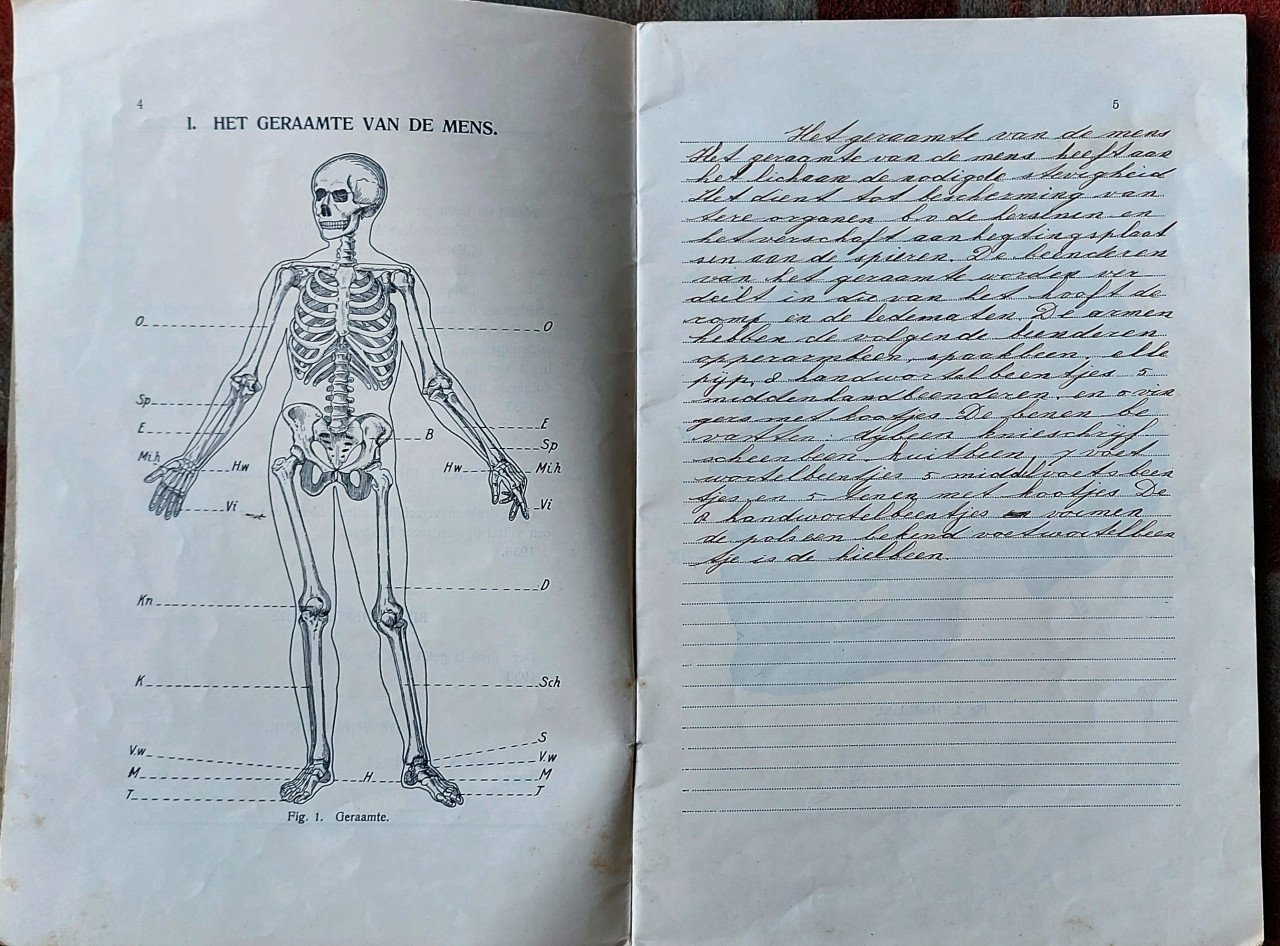 4
I. HET GERAAMTE VAN DE MENS.
O
O
Sp
E
E
B
Sp
Mih
Hw
Hw
Mih
Vi
Vi
D
Kn
K
Sch
S
V.w
V.w
M
H
M
T
T
Fig. 1. Geraamte.
5
Het geraamte van de mens
Het geraamte van de mens heeft aan
het lichaam de nodigde stevigheid
Het dient tot bescherming van
tere organen bv de hersenen en
het verschaft aanhegtingsplaat
sen aan de spieren. De beenderen
van het geraamte worden ver
deilt in die van het hooft de
romp en de ledematen. De armen
hebben de volgende beenderen
opperarmbeen, spaakbeen, elle
pijp, 8 handwortelbeentjes 5
middenhandbeenderen. en 5 vin
gers met kootjes. De benen be
vatten: dijbeen knieschrijf
scheenbeen, kuitbeen, 7 voet
wortelbeentjes 5 middelvoetsbeen
tjes en 5 tenen met kootjes. De
8 handwortelbeentjes vormen
de pols een bekend voetwortelbeen
tje is de hielbeen.